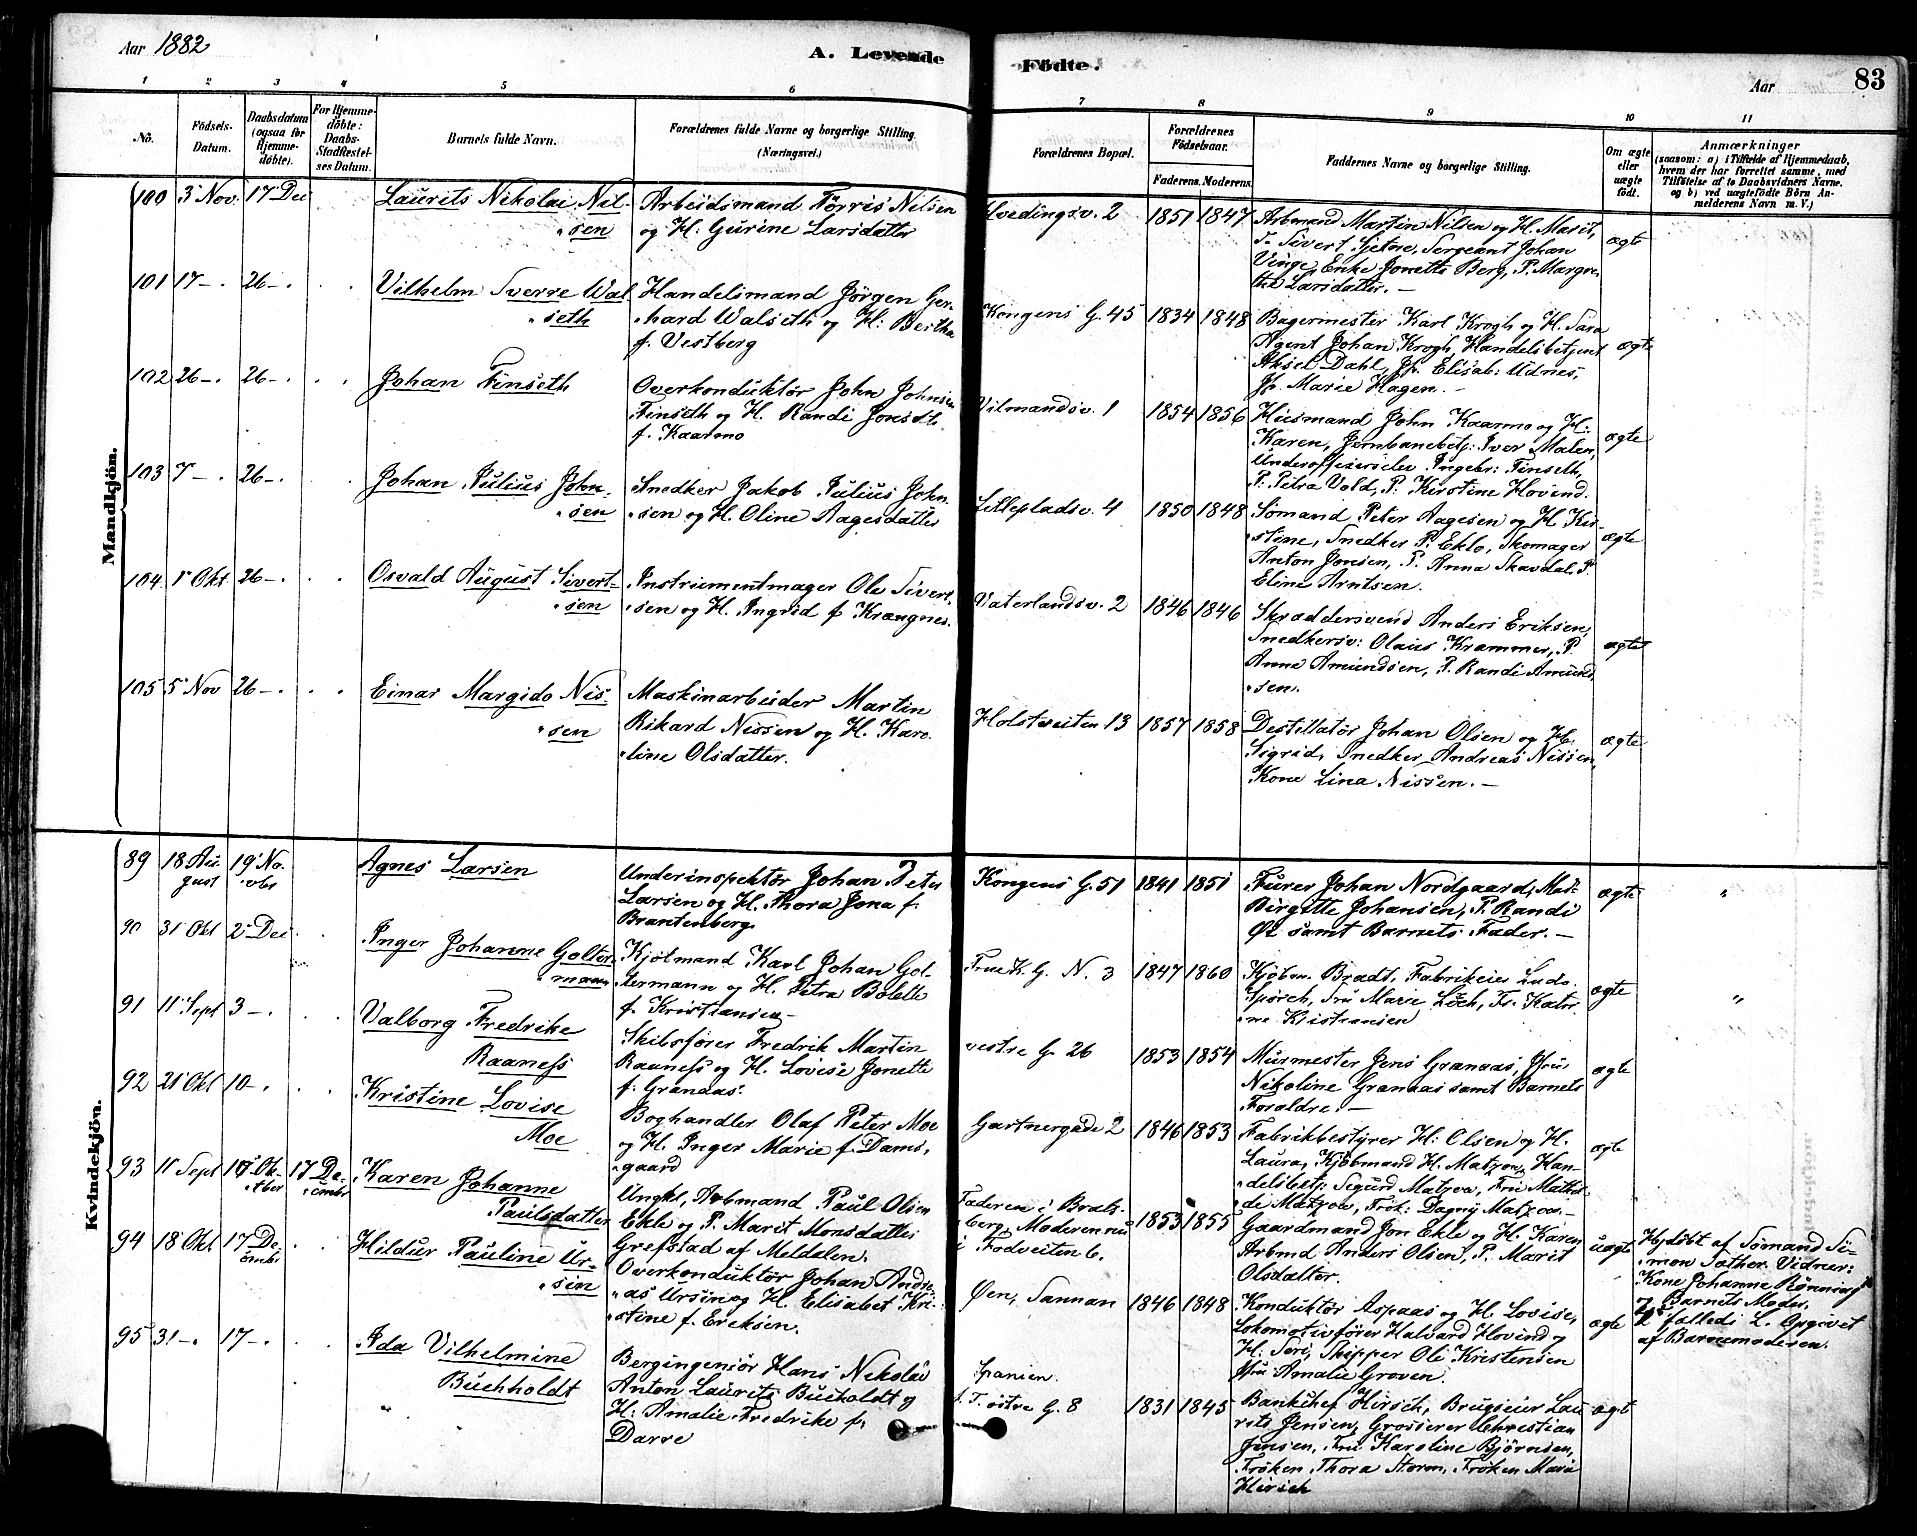 Aar 1882
A. Levende
Födte.
Aar
83
1 2 3 4 5 6 7 8 9 10 11
No.
Födsels-Datum.
Daabsdatum (ogsaa for Hjemmedöbte).
For Hjemmedöbte: Daabs-Stadfæstelses Datum.
Barnets fulde Navn.
Forældrenes fulde Navne og borgerlige Stilling.
(Næringsvei.)
Forældrenes Bopæl.
Forældrenes Födselsaar.
Faderens. Moderens.
Faddernes Navne og borgerlige Stilling.
Om ægte eller uægte födt.
Anmærkninger
(saasom: a) i Tilfælde af Hjemmedaab, hvem der har forrettet samme, med Tilföielse af to Daabsvidners Navne. og b) ved uægtefödte Börn Anmelderens Navn m. V.)
Mandkjön.
100 3 Nov. 17 Dec
Laurits Nikolai Nil-
"sen
Arbeidsmand Törris Nilsen
og H. Gurine Larsdatter
Hvedingsv. 2
1851 1847
Arbmand Martin Nilsen og H. Marit,
Sivert Sjetne, Sergeant Johan
Vinge, Enke Jonette Berg, P. Margre
the Larsdatter. —
ægte
101 17 –. 26 –.
Vilhelm Sverre Wal
"seth
Handelsmand Jörgen Ger-
"hard Walseth og H: Bertha
f. Vestberg
Kongens G. 45
1834 1848
Bagermester Karl Krogh og H. Sara
Agent Johan Krogh, Handelsbetjent
Aksel Dahl, Jfr. Elisab: Udnes,
Jfr. Marie Hagen. –
ægte
102 26 –. 26 –.
Johan Finseth
Overkonduktör John Johnsen
Finseth og H. Randi Jonsdtr.
f. Kaarmo
Vilmandsv. 1
1854 1856
Husmand John Kaarmo og H:
Karen, Jernbanebetj: Iver Malen,
Underofficerselev Ingebr: Finseth,
P. Petra Vold, P. Kirstine Hovend.
ægte
103 7 –. 26 –.
Johan Julius John-
"sen
Snedker Jakob Julius John-
"sen og H. Oline Aagesdatter
Lillepladsv. 4
1850 1848
Sömand Peter Aagesen og H Kir-
"stine, Snedker P. Eklo, Skomager
Anton Jonsen, P. Anna Skavdal, P.
Eline Arntsen.
ægte
104 1 Okt 26 –.
Osvald August Sivert-
"sen
Instrumentmager Ole Sivert,
"sen og H. Ingrid f Krangnes.
Vaterlandsv. 2
1846 1846
Skræddersvend Anders Eriksen,
Snedkersv: Olaus Krammer, P.
Anne Amundsen, P. Randi Amund
"sen.
ægte
105 5 Nov 26 –.
Einar Margido Nis-
"sen
Maskinarbeider Martin
Rikard Nissen og H. Karo
"line Olsdatter.
Holstveiten 13
1857 1858
Destillatör Johan Olsen og H.
Sigrid, Snedker Andreas Nissen,
Kone Lina Nissen. —
ægte
Kvindekjön.
89 18 Au-
gust 19 No-
vbr
Agnes Larsen
Underinspektör Johan Peter
Larsen og H. Thora Jona f.
Brantenberg.
Kongens G. 51
1841 1851
Furer Johan Nordgaard, Mad.
Birgitte Johansen, P. Randi
Øi samt Barnets Fader. —
ægte
"
90 31 Okt 2 Dec
Inger Johanne Golter
"mann
Kjölmand Karl Johan Gol-
termann og H. Petra Bolette
f. Kristiansen
Frue K. G. N. 3
1847 1860
Kjöbm. Bradt, Fabrikeier Ludv.
Spörch, Fru Marie Löch, Fr. Katri
"ne Kristiansen
ægte
"
91 11 Sept 3 –.
Valborg Fredrike
Raaness
Skibsförer Fredrik Martin
Raaness og H. Lovise Jonette
f. Granaas.
vestre G. 26
1853 1854
Murmester Jens Granaas, Fru
Nikoline Granaas samt Barnets
Foraldre. —
ægte
92 21 Okt 10 –.
Kristine Lovise
Moe
Boghandler Olaf Peter Moe
og H. Inger Marie f. Dams,
"gaard
Gartnergade 2
1846 1853
Fabrikbestyrer H: Olsen og H.
Laura, Kjöbmand H. Matzow, Han-
"delsbetj: Sigurd Matzow, Fru Mathil
"de Matzow, Frök: Dagny Matzow. –
ægte
93 11 Sept 10 Ok-
"tber 17 De-
"cembr
Karen Johanne
Paulsdatter
Ungkl, Arbmand Paul Olsen
Ekle og P. Marit Monsdatter
Grefstad af Meldalen.
Faderen i Brats-
"berg, Moderen nu
i Fodveiten 6.
1853 1855
Gaardmand Jon Ekle og H. Karen
Arbmd Anders Olsen, P. Marit
Olsdatter.
uægte
Hjdöbt af Sömand Si-
"mon Sæther. Vidner:
Kone Johanne Rönning
Barnets Moder.
falledi L. Opgivet
af Barnemoderen.
94 18 Okt 17 De-
cembr
Hildur Pauline Ur-
"sin
Overkonduktör Johan Andre-
"as Ursin og H. Elisabet Kri-
"stine f. Ereksen.
Øen, Sannan
1846 1848
Konduktör Aspaas og H. Lovise,
Lokomotivförer Halvard Hovind og
H. Siri, Skipper Ole Kristensen
Fru Amalie Groven.
ægte
95 31 –. 17 –.
Ida Vilhelmine
Buchholdt
Bergingeniör Hans Nikolai
Anton Laurits Bucholdt og
H: Amalie Fredrike f.
Darre
Spanien.
östre G. 8
1831 1845
Bankchef Hirsch, Brugseier Lau
rits Jensen, Grosserer Christian
Jensen, Fru Karoline Björnsen,
Fröken Thora Storm, Fröken Marie
Hirsch
ægt